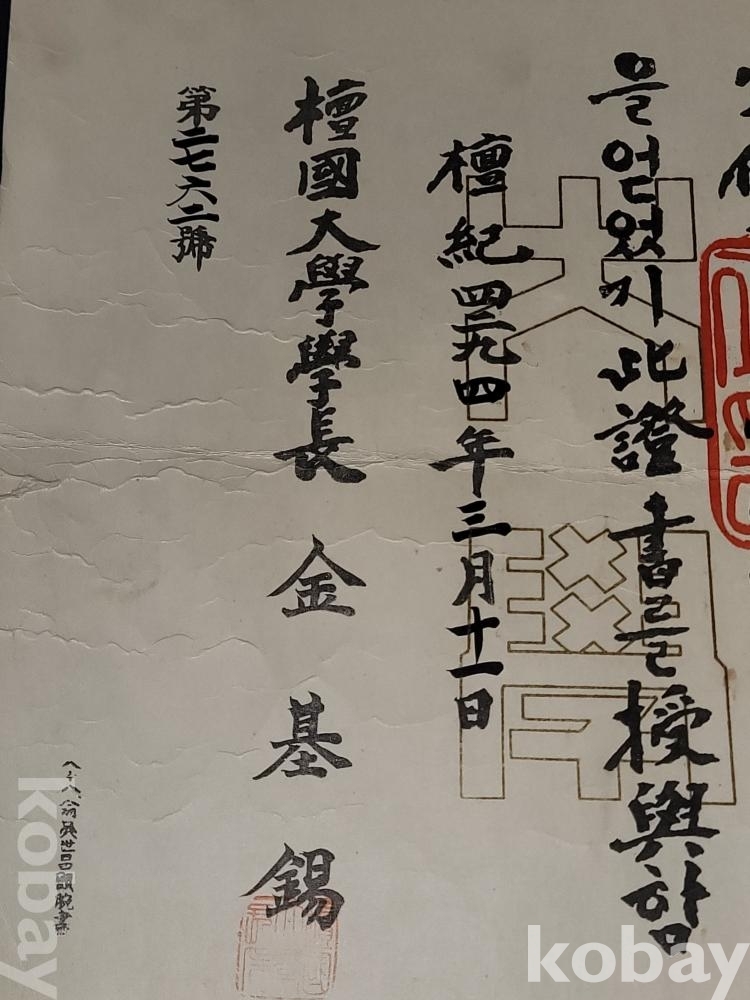 을얻었기此證書를授與함
檀紀四二九四年三月十一日
檀國大學學長 金基錫
第二七六二號
翁吳世昌 腕書
kobay
kobay